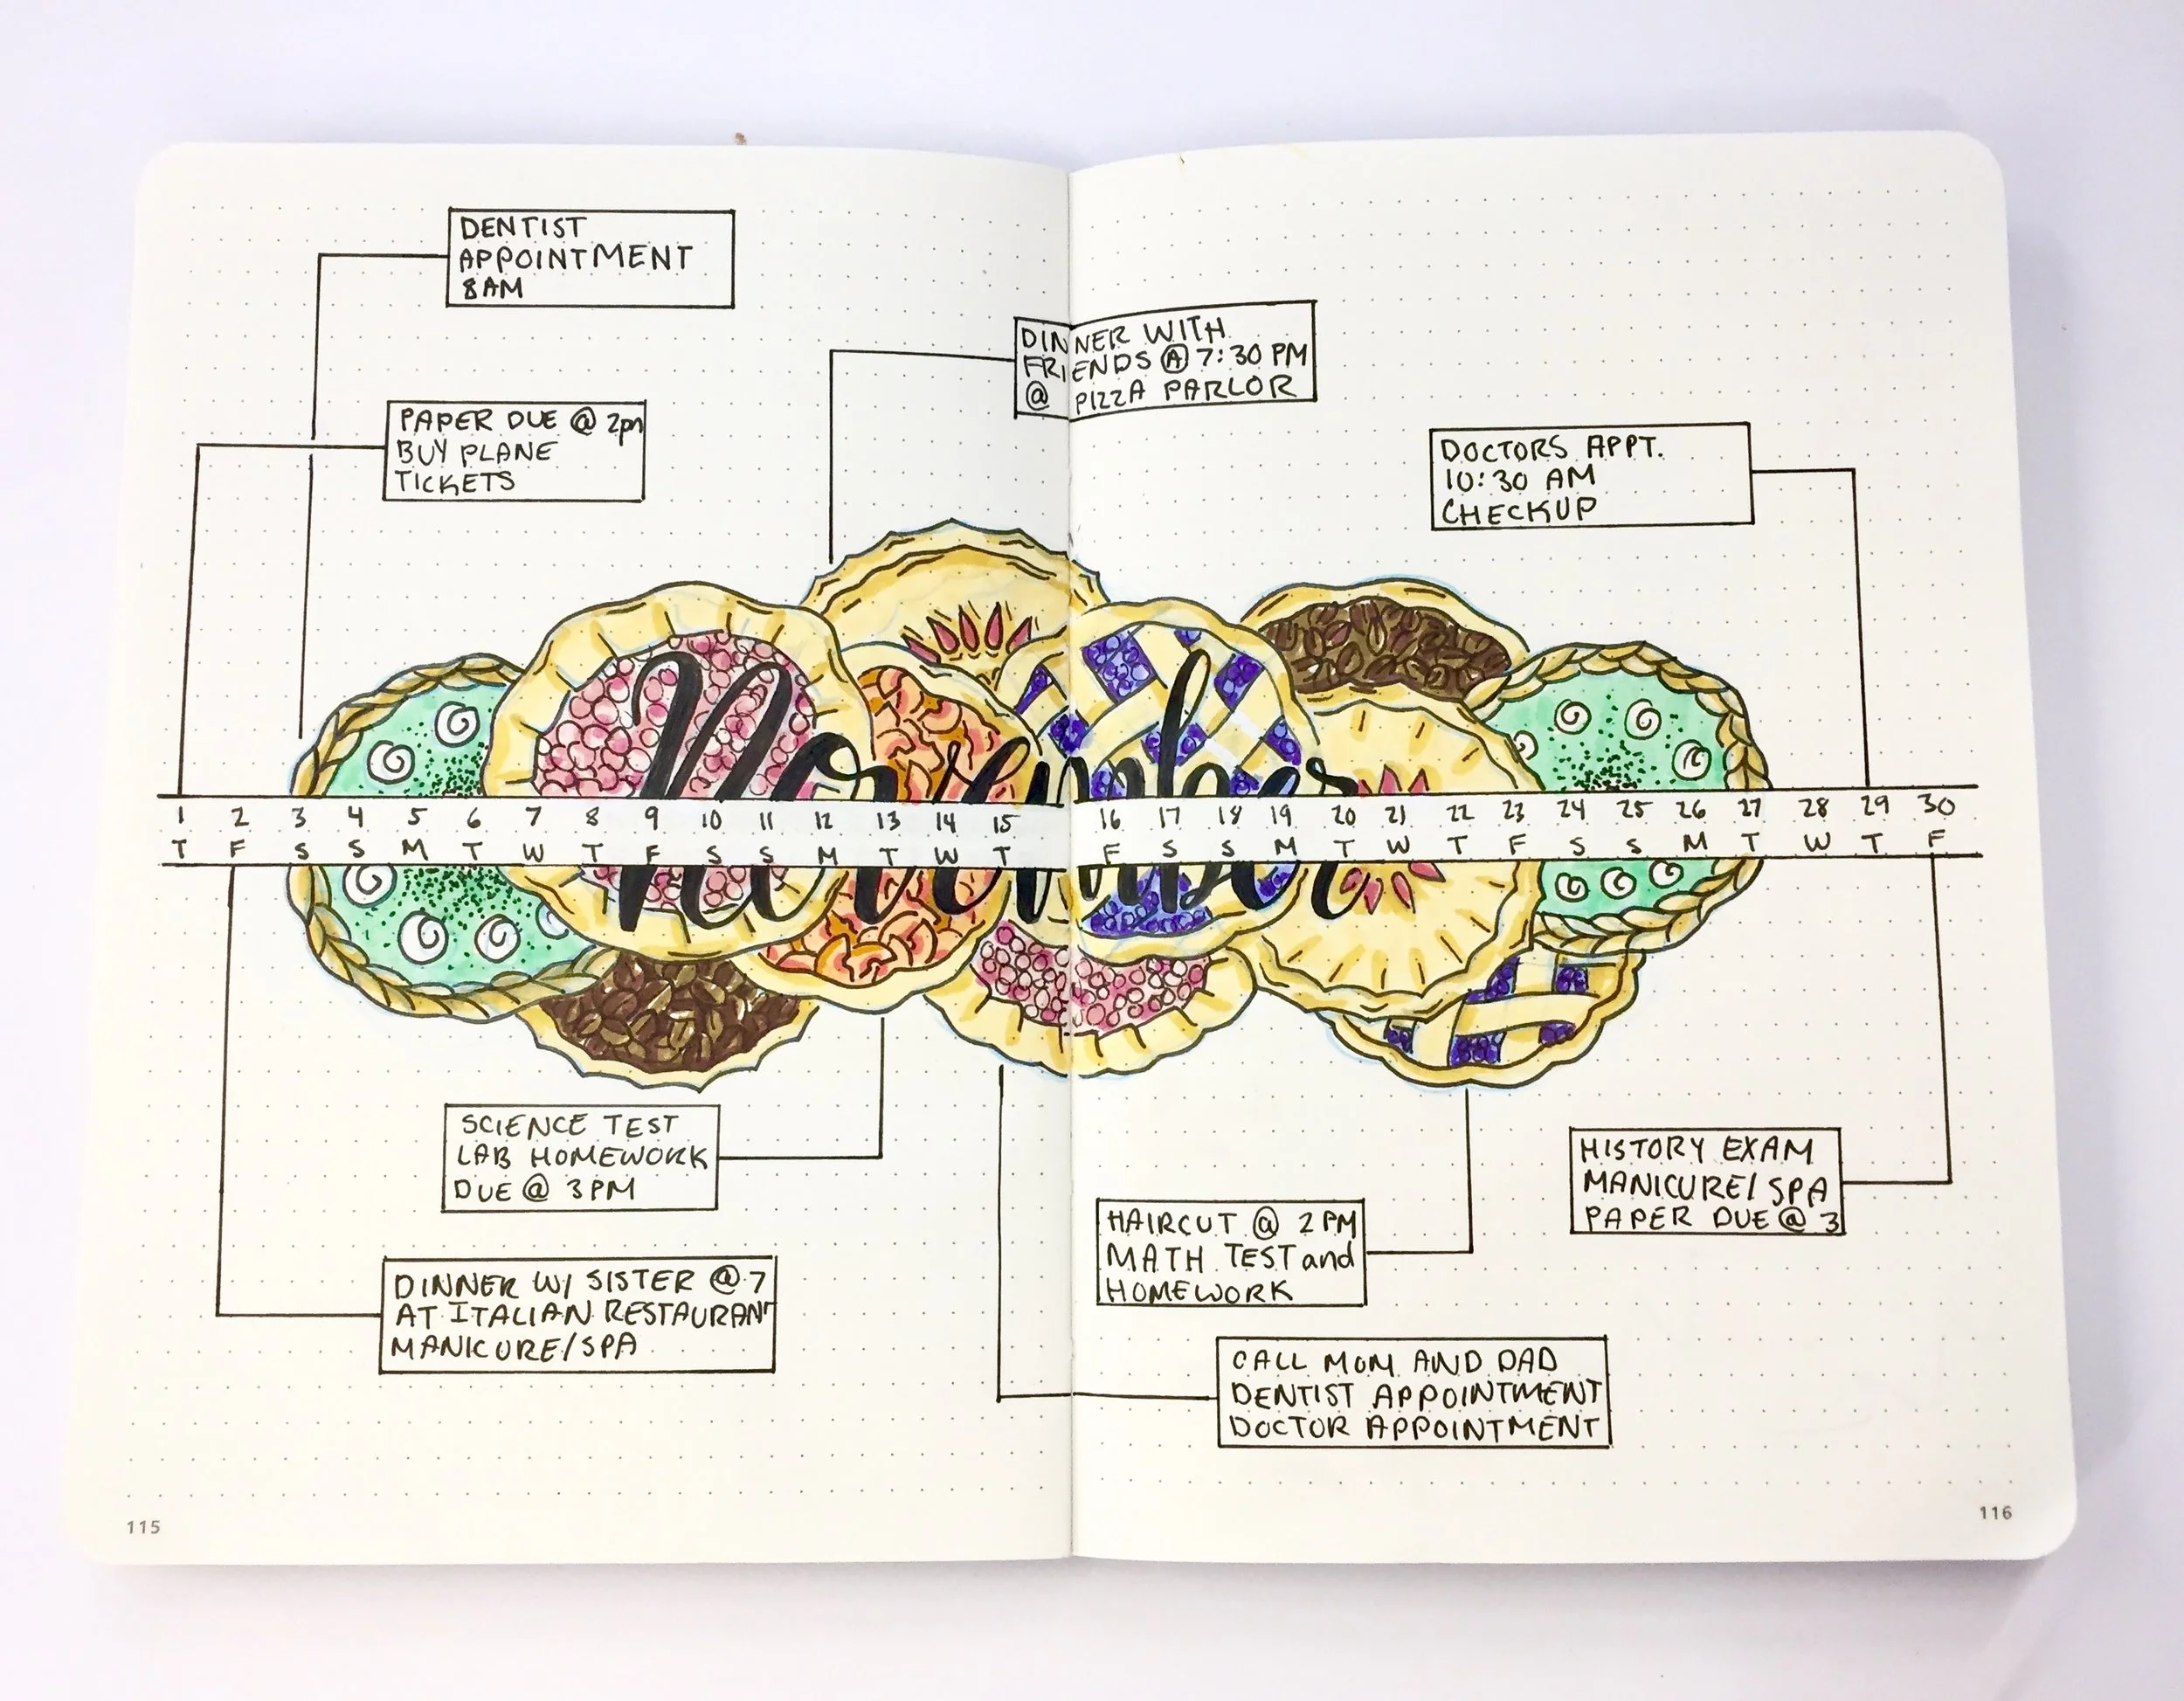 DENTIST
APPOINTMENT
8AM
DINNER WITH
FRIENDS @ 7:30 PM
@ PIZZA PARLOR
PAPER DUE @ 2pm
BUY PLANE
TICKETS
DOCTORS APPT.
10:30 AM
CHECKUP
November
1 2 3 4 5 6 7 8 9 10 11 12 13 14 15 16 17 18 19 20 21 22 23 24 25 26 27 28 29 30
T F S S M T W T F S S M T W T F S S M T W T F S S M T W T F
SCIENCE TEST
LAB HOMEWORK
DUE @ 3PM
HISTORY EXAM
MANICURE/SPA
PAPER DUE @ 3
HAIRCUT @ 2PM
MATH TEST and
HOMEWORK
DINNER W/ SISTER @ 7
AT ITALIAN RESTAURANT
MANICURE/SPA
CALL MOM AND DAD
DENTIST APPOINTMENT
DOCTOR APPOINTMENT
115
116